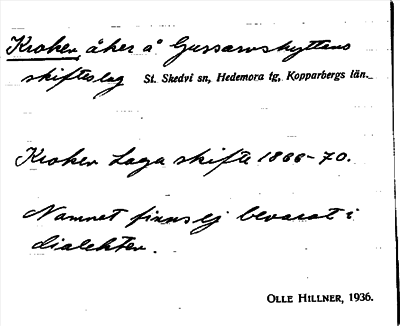 Kroken, åker å Gussarvshyttans
skifteslag St. Skedvi sn, Hedemora tg, Kopparbergs län.
Kroken Laga skifte 1866-70.
Namnet finns ej bevarat i
dialekten.
OLLE HILLNER, 1936.